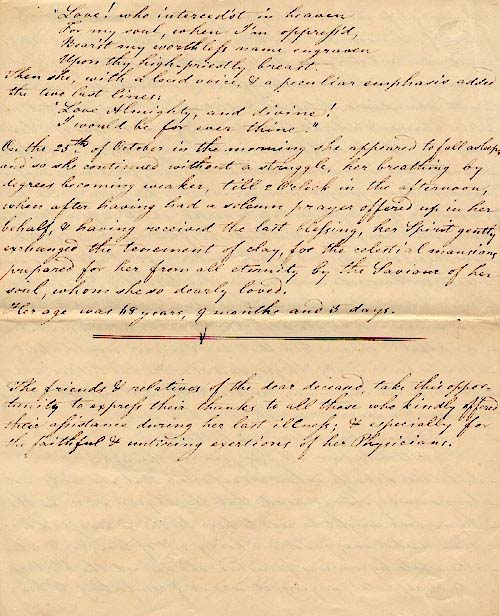 "Love! who interced'st in heaven
For my soul, when I'm oppress'd,
Bear'st my worthless name engraven
Upon thy high-priestly breast.
Then she, with a loud voice, & a peculiar emphasis added
the two last lines:
"Love Almighty, and divine!
I would be for ever thine."
On the 25th of October in the morning she appeared to fall asleep,
and so she continued without a struggle, her breathing by
degrees becoming weaker, till 2 O'clock in the afternoon,
when after having had a solemn prayer offered up in her
behalf, & having received the last blessing, her Spirit gently
exchanged the tenement of clay, for the celestial mansions
prepared for her from all eternity by the Saviour of her
soul, whom she so dearly loved.
Her age was 68 years, 9 months and 3 days.
The friends & relatives of the dear deceased, take this oppor-
tunity to express their thanks to all those who kindly offered
their assistance during her last illness; & especially for
the faithful & untiring exertions of her Physicians.